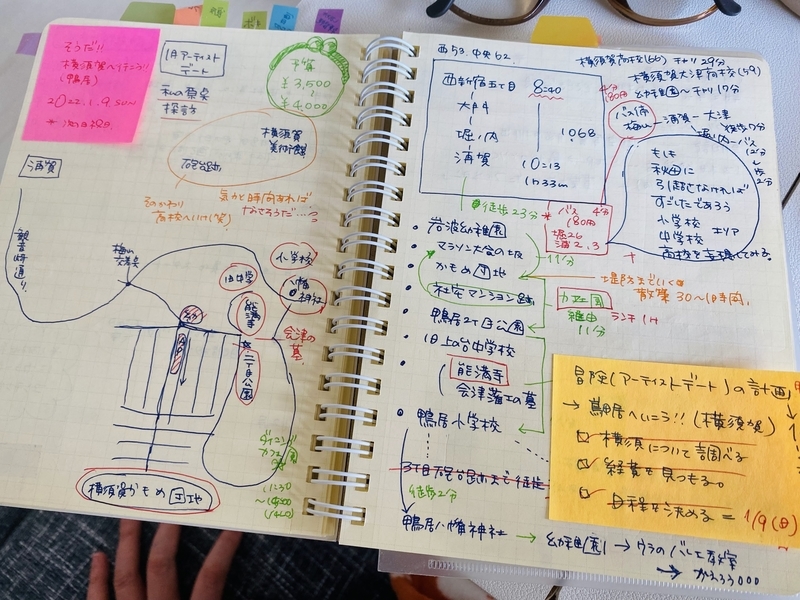 そうだ!!
横須賀へ行こう!!
(鴨居)
2022.1.9.sun
1月アーティスト
デート
私の原点
探訪
予算
¥3,500
¥4,000
横須賀
美術館
砲台跡
気力と時間あれば
そのかわり
高校へいけ(笑)
浦賀
観音崎通り
梅山
交差点
小学校
八幡
神社
旧中学
能満寺
会津の
墓
二丁目公園
ダイニング
カフェ
1230
横須賀かもめ団地
西53.中央62
西新宿五丁目 8:40
大門
堀ノ内 1068
浦賀 10:13
1h33m
横須賀高校(66) チャリ29分
横須賀大津高校(59)
幼稚園〜チャリ17分
バス停
梅山
4分
180円
浦賀―大津
徒歩7分
堀ノ内―バス
12分
歩
2分
もし
秋田に
引越さなければ
すごしたであろう
小学校 エリア
中学校
高校を妄想してみる。
徒歩23分
バス 4分
180円
堀26
浦2.3
11分
岩波幼稚園
マラソン大会の坂
かもめ団地
社宅マンション跡
鴨居2丁目公園
旧上の台中学校
能満寺
会津藩士の墓
鴨居小学校
堤防まで
散策 30〜1時間
カフェ園
経由 ランチ1H
11分
3丁目砲台跡まで徒歩
徒歩2分
鴨居八幡神社 → 幼稚園 → ウラのバレエ教室
→ かえろうooo
冒険(アーティストデート)の計画
→ 鴨居へいこう!!(横須賀)
横須賀について調べる
経費を見つもる。
日程を決める = 1/9(日)